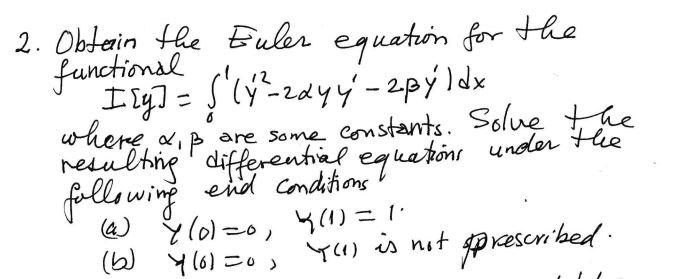 2. Obtain the Euler equation for the
functional
I[y] = ∫₀¹ (y'² - 2αyy' - 2βy') dx
where α, β are some constants. Solve the
resulting differential equations under the
following end conditions
(a) y(0)=0, y(1)=1.
(b) y(0)=0, y(1) is not prescribed.